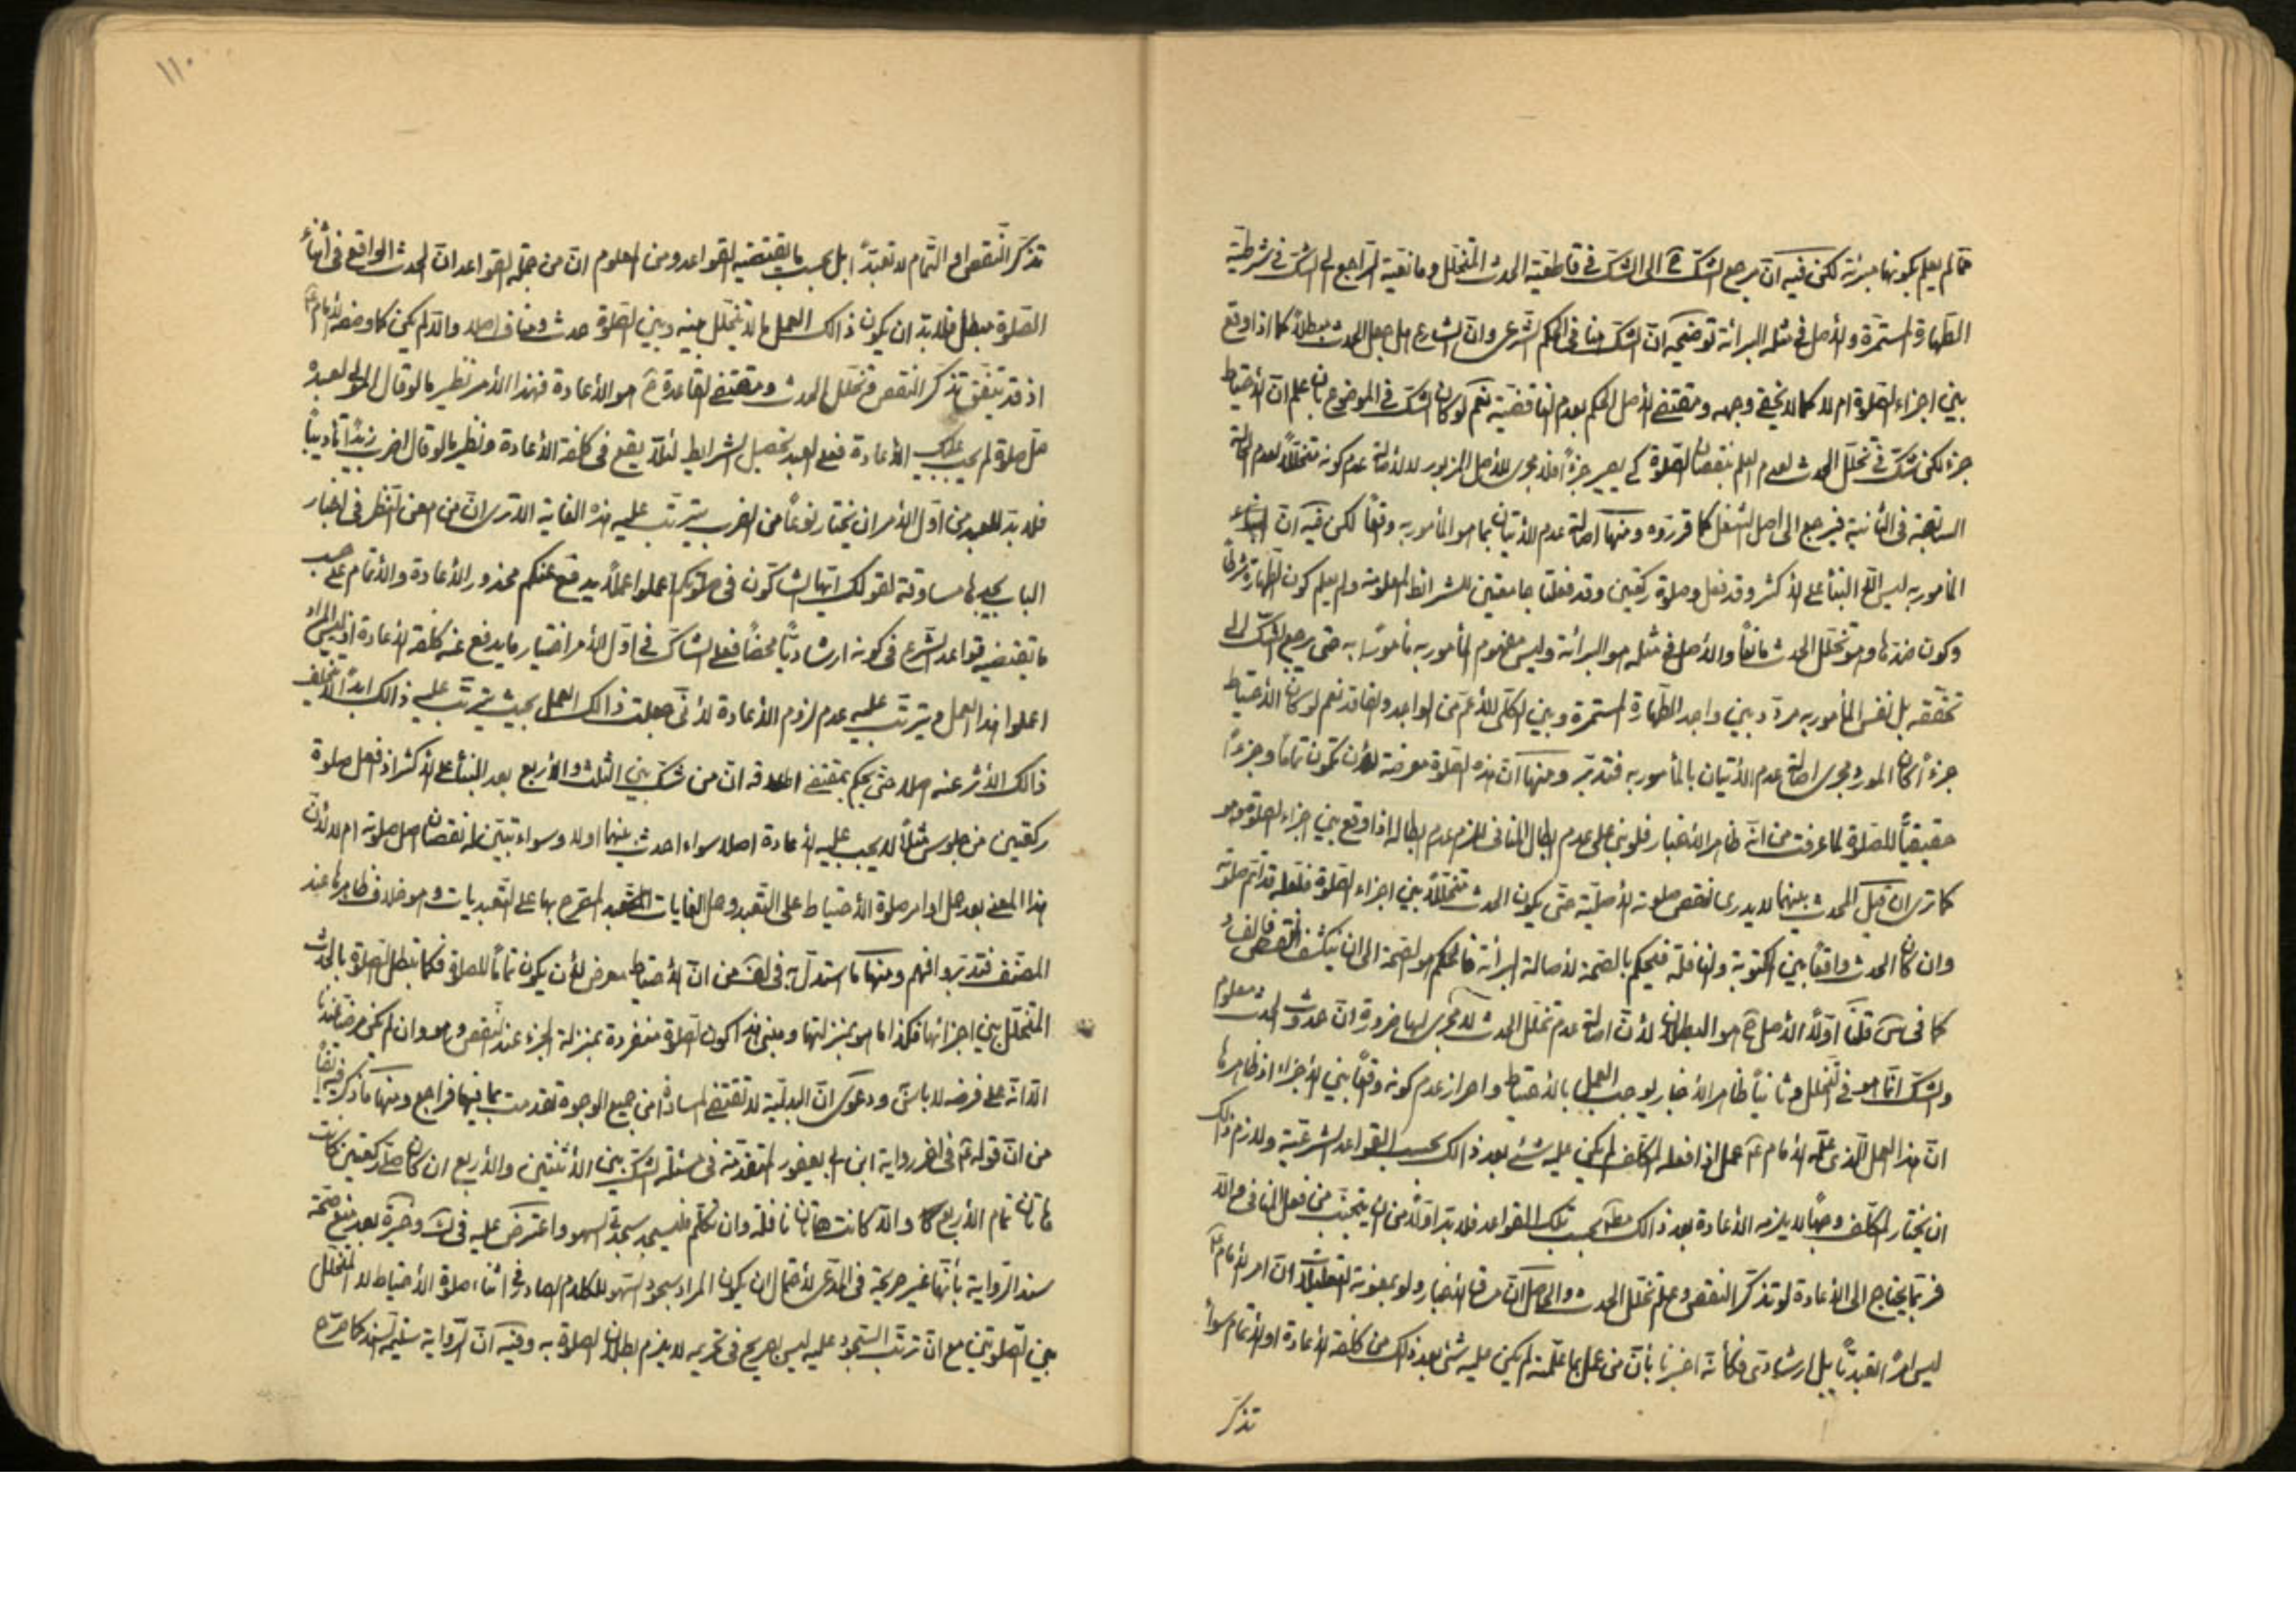 مما لم يعلم بكونها مبرئة لكن فيه ان مرجع الشك ح الى الشك في قاطعية الحدث المتخلل ومانعيته الراجع الى الشك في شرطية
الطهارة المستمرة والأصل في مثله البرائة توضيحه ان الشك هنا في الحكم الشرعى وان الشارع هل جعل الحدث مبطلاً كما اذا وقع
بين اجزاء الصلوة ام لا كما لا يخفى وجهه ومقتضى الأصل الحكم بعدم الناقضية نعم لو كان الشك في الموضوع بان علم ان الأحتياط
جزء لكن شك في تخلل الحدث لعدم العلم بنقصان الصلوة كى يصير جزءاً فلا مجرى للأصل المزبور لا لأصالة عدم كونه متخللاً لعدم الحالة
السابقة في الثانية فيرجع الى اصل الشغل كما قرروه ومنها اصالة عدم الأتيان بما هو المأمور به وقعاً لكن فيه ان
المأمور به ليس الا البناء على الأكثر وقد فعل وصلوة ركعتين وقد فعلتا جامعتين للشرائط المعلومة ولم يعلم كون الطهارة شرطاً
وكون ضدها وهو تخلل الحدث مانعاً والأصل في مثله هو البرائة وليس مفهوم المأمور به مأموراً به حتى يرجع الشك الى
تحققه بل نفس المأمور به مردد بين واجد الطهارة المستمرة وبين الكلى للأعم من الواجد والفاقد نعم لو كان الأحتياط
جزءاً كان المورد مجرى اصالة عدم الأتيان بالمأمور به فتدبر ومنها ان هذه الصلوة معرضة لأن تكون تماماً وجزءاً
حقيقياً للصلوة لما عرفت من انه ظاهر الأخبار فلو بنى على عدم ابطال المنافى للزم عدم ابطاله اذا وقع بين اجزاء الصلوة وهو
كما ترى ان قيل الحدث بينهما لا يدرى نقص صلوته الأصلية حتى يكون الحدث متخللاً بين اجزاء الصلوة فلعله قد اتم صلوته
وان كان الحدث واقعاً بين المكتوبة والنافلة فيحكم بالصحة لأصالة البرائة فالحكم هو الصحة الى ان ينكشف النقص
كما في س قلنا اولاً الأصل ح هو البطلان لأن اصالة عدم تخلل الحدث لا مجرى لها ضرورة ان حدوث الحدث معلوم
والشك انما هو في التخلل وثانياً ظاهر الأخبار يوجب العمل بالأحتياط واحراز عدم كونه وقعاً بين الأجزاء اذ ظاهرها
ان هذا العمل الذى علمه الأمام ع عمل اذا فعله المكلف لم يكن عليه شئ بعد ذالك بحسب القواعد الشرعية ولازم ذالك
ان يختار المكلف وجهاً لا يلزمه الأعادة بعد ذالك بحسب تلك القواعد فلا بد اولاً من ان يتجنب من فعل المنافى والا
فربما يحتاج الى الأعادة لو تذكر النقص وعلم تخلل الحدث والحاصل ان مساق الأخبار ولو بمعونة التعليلات ان امر الأمام ع
ليس امراً تعبدياً بل ارشادى فكأنه اخبرنا بأن من عمل بما علمته لم يكن عليه شئ بعد ذالك من كلفة الأعادة او الأتمام سواء
تذكر
١١٠
تذكر النقص او التمام لا تعبداً بل بحسب ما يقتضيه القواعد ومن المعلوم ان من جملة القواعد ان الحدث الواقع في اثناء
الصلوة مبطل فلا بد ان يكون ذالك العمل ما لا يتخلل بينه وبين الصلوة حدث ومناف اصلا والا لم يكن كما وصفه الأمام ع
اذ قد يتفق تذكر النقص مع تخلل الحدث ومقتضى القاعدة ح هو الأعادة فهذا الأمر نظير ما لو قال المولى لعبده
صل صلوة لم يجب عليك الأعادة فعلى العبد تحصيل الشرايط لئلا يقع في كلفة الأعادة ونظير ما لو قال اضرب زيداً تأديباً
فلا بد للعبد من اول الأمر ان يختار نوعاً من الضرب يترتب عليه هذه الغاية الا ترى ان من امعن النظر في اخبار
الباب يجدها مساوقة لقولك ايها الشاكون في صلوتكم اعملوا عملاً يدفع عنكم محذور الأعادة والأتمام على حسب
ما يقتضيه قواعد الشرع في كونه ارشادياً محضاً فعلى الشاك في اول الأمر اختيار ما يدفع عنه كلفة الأعادة اذ ليس المراد
اعملوا هذا العمل ويترتب عليه عدم لزوم الأعادة لأنى جعلت ذالك العمل بحيث يترتب عليه ذالك ابداً لا يتخلف
ذالك الأثر عنه اصلا حتى يحكم بمقتضى اطلاقه ان من شك بين الثلث والأربع بعد البناء على الأكثر اذ فعل صلوة
ركعتين من جلوس مثلاً لا يجب عليه الأعادة اصلا سواء احدث بينهما اولا وسواء تبين له نقصان اصل صلوته ام لا لأن
هذا المعنى بعد حمل اوامر صلوة الأحتياط على التعبد وحمل الغايات المصرح بها على التعبديات وهو خلاف ظاهرها عند
المصنف فتدبر وافهم ومنها ما استدل به في لف من ان الأحتياط معرض لأن يكون تماماً للصلوة فكما تبطل الصلوة بالحدث
المتخلل بين اجزائها فكذا ما هو بمنزلتها ومبنى هذا كون الصلوة منفردة بمنزلة الجزء عند النقص وهو وان لم يكن مرضياً عندنا
الا انه على فرضه لا باس ودعوى ان البدلية لا تقتضى المساواة من جميع الوجوه تقدمت بما فيها فراجع ومنها ما ذكر فيه ايضاً
من ان قوله ع في اخر رواية ابن ابى يعفور المتقدمة في مسئلة الشك بين الأثنتين والأربع ان كان صلى ركعتين كانت
هاتان تمام الأربع والا كانت هاتان نافلة وان تكلم فليسجد سجدتى السهو واعترض عليه في ك وخيرة بعد منع صحة
سند الرواية بأنها غير صريحة في المدعى لأحتمال ان يكون المراد سجود السهو للكلام الصادر في اثناء صلوة الأحتياط لا المتخلل
بين الصلوتين مع ان ترتب السجود عليه ليس بصريح في تحريمه لا يلزم بطلان الصلوة به وفيه ان الرواية سليمة السند كما صرح